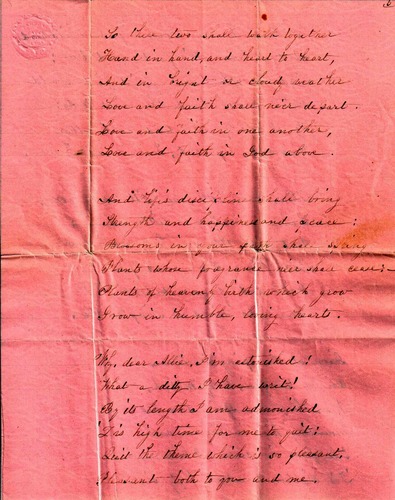 So these two shall walk together
Hand in hand, and heart to heart,
And in bright or cloudy weather
Love and faith shall ne'er depart.
Love and faith in one another,
Love and faith in God above.
And life's discipline shall bring
Strength and happiness and peace;
Blossoms in your path shall spring
Plants whose fragrance ne'er shall cease;—
Plants of heavenly birth which grow
Grow in humble, loving hearts.
Why, dear Allie, I'm astonished!
What a ditty I have writ!
By its length I am admonished
'Tis high time for me to quit;
Quit the theme which is so pleasant,
Pleasant both to you and me.